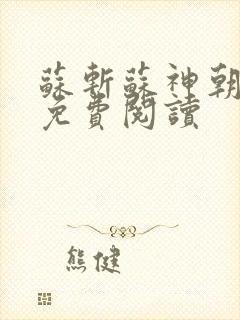 蘇斬蘇神朝
免費閱讀
熊健